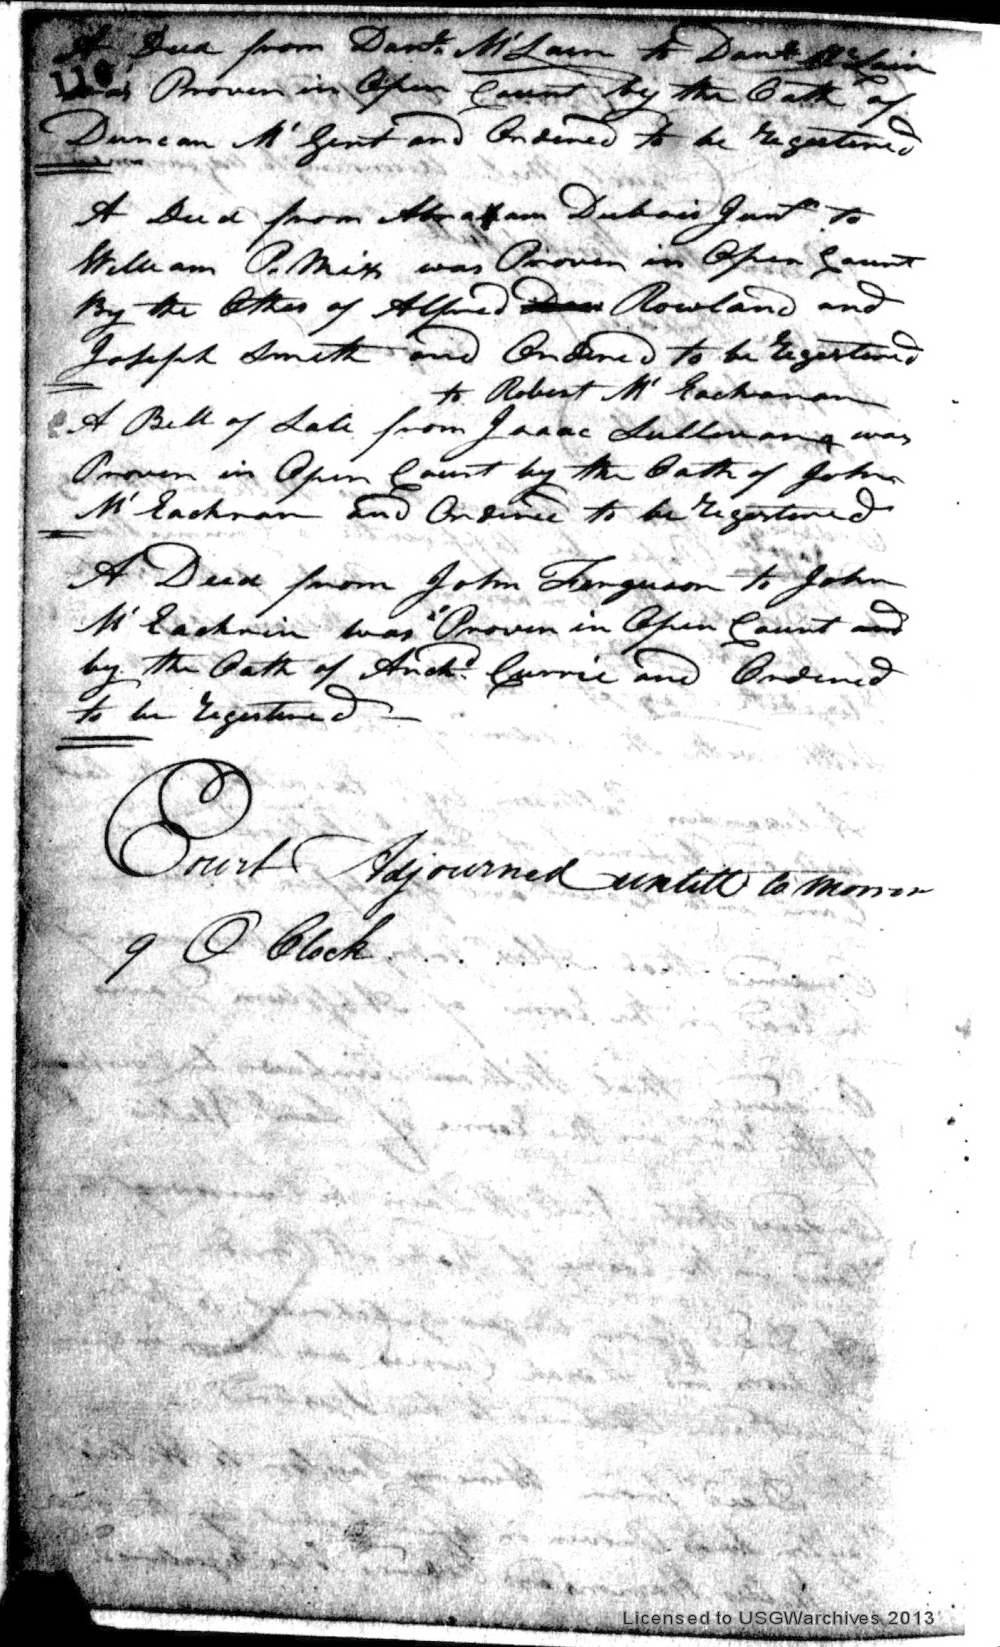 A Deed from Danl. McLain to Danl. McLain
110
was Proven in Open Court by the Oath of
Duncan Mc Gent and Ordered to be Regestered
A Deed from Abraham Dubois Junr. to
William P. Mix was Proven in Open Court
By the Othes of Alfred Rowland and
Joseph Smith and Ordered to be Regestered
to Robert Mc Eachanan
A Bill of Sale from Isaac Sullivan was
Proven in Open Court by the Oath of John
Mc Eachnan and Ordered to be Regestered
A Deed from John Ferguson to John
Mc Eachrin was Proven in Open Court and
by the Oath of Archd. Currie and Ordered
to be Regestered
Court Adjourned untill to morrow
9 O Clock
Licensed to USGWarchives 2013